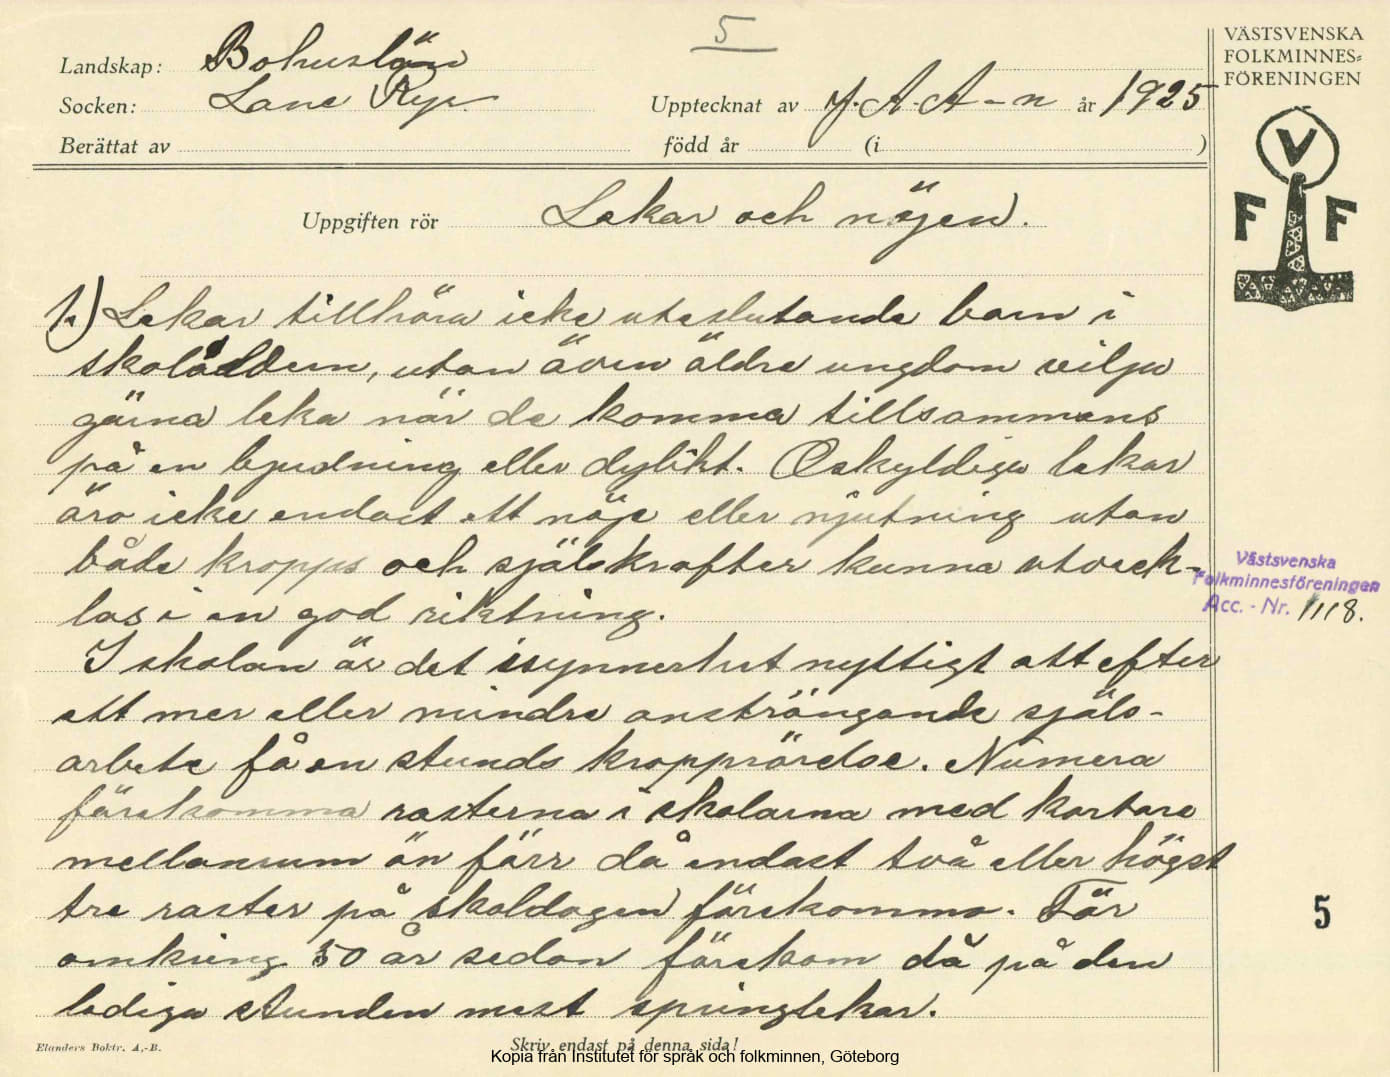 5
VÄSTSVENSKA
FOLKMINNES=
FÖRENINGEN
Landskap: Bohuslän
Socken: Lane Ryr
Upptecknat av J. A. A-n år 1925
Berättat av
född år (i )
V
F F
Uppgiften rör Lekar och nöjen.
1.) Lekar tillhöra icke uteslutande barn i
skolåldern, utan även äldre ungdom vilja
gärna leka när de komma tillsammans
på en bjudning eller dylikt. Oskyldiga lekar
äro icke endast ett nöje eller njutning utan
både kropps och själskrafter kunna utveck-
las i en god riktning.
I skolan är det isynnerhet nyttigt att efter
ett mer eller mindre ansträngande själs-
arbete få en stunds kropprörelse. Numera
förekomma rasterna i skolarna med kortare
mellanrum än förr då endast två eller högst
tre raster på skoldagen förekommo. För
omkring 50 år sedan förekom då på den
lediga stunden mest springlekar.
Västsvenska
Folkminnesföreningen
Acc. - Nr. 1118.
5
Elanders Boktr. A.-B.
Skriv endast på denna sida!
Kopia från Institutet för språk och folkminnen, Göteborg